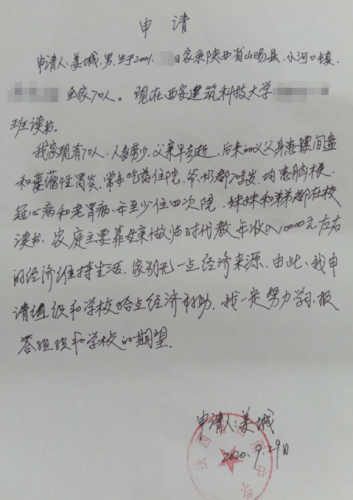 申请
申请人:姜城,男,生于2001.日家乘陕西省山阳县,小河口镇
全家7口人。现在西安建筑科技大学
班读书。
我家现有7口人,人多劳少,父亲早去逝,后来的父父异患腰间盘
和糜落性胃炎,常年吃药住院,爷奶都70多岁,内患脑梗,
冠心病和老胃病,年至少住四次院,妹妹和弟弟都在校
读书,家庭主要靠母亲做临时代教,年收入10000元左右
的经济维持生活,家别无一点经济来源,由此,我申
请组织和学校给点经济补助,我一定努力学习,报
答组织和学校的期望。
申请人:姜城
2020.9.29日